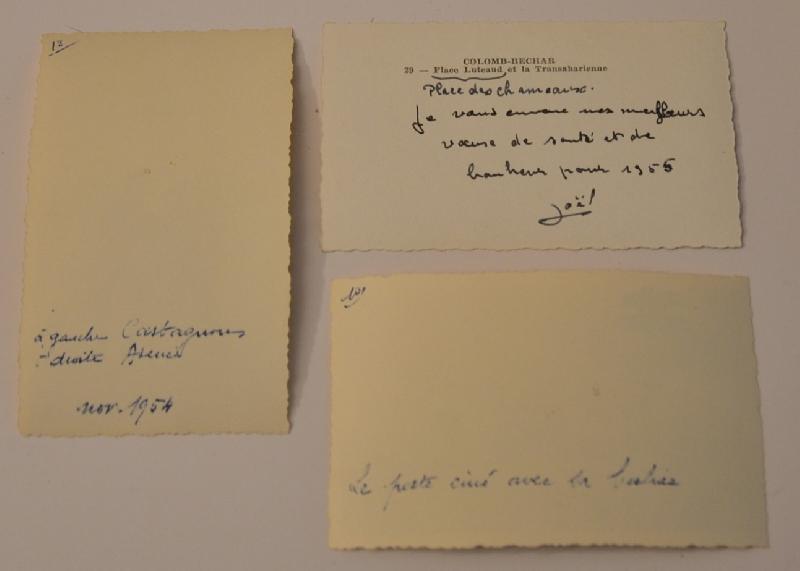 12
à gauche Castagnous
à droite
nov. 1954
COLOMB-BECHAR
29 — Place Luteaud et la Transsaharienne
Place des chameaux.
Je vous envoie mes meilleurs
vœux de santé et de
bonheur pour 1955
Joël
Le poste ciné avec la